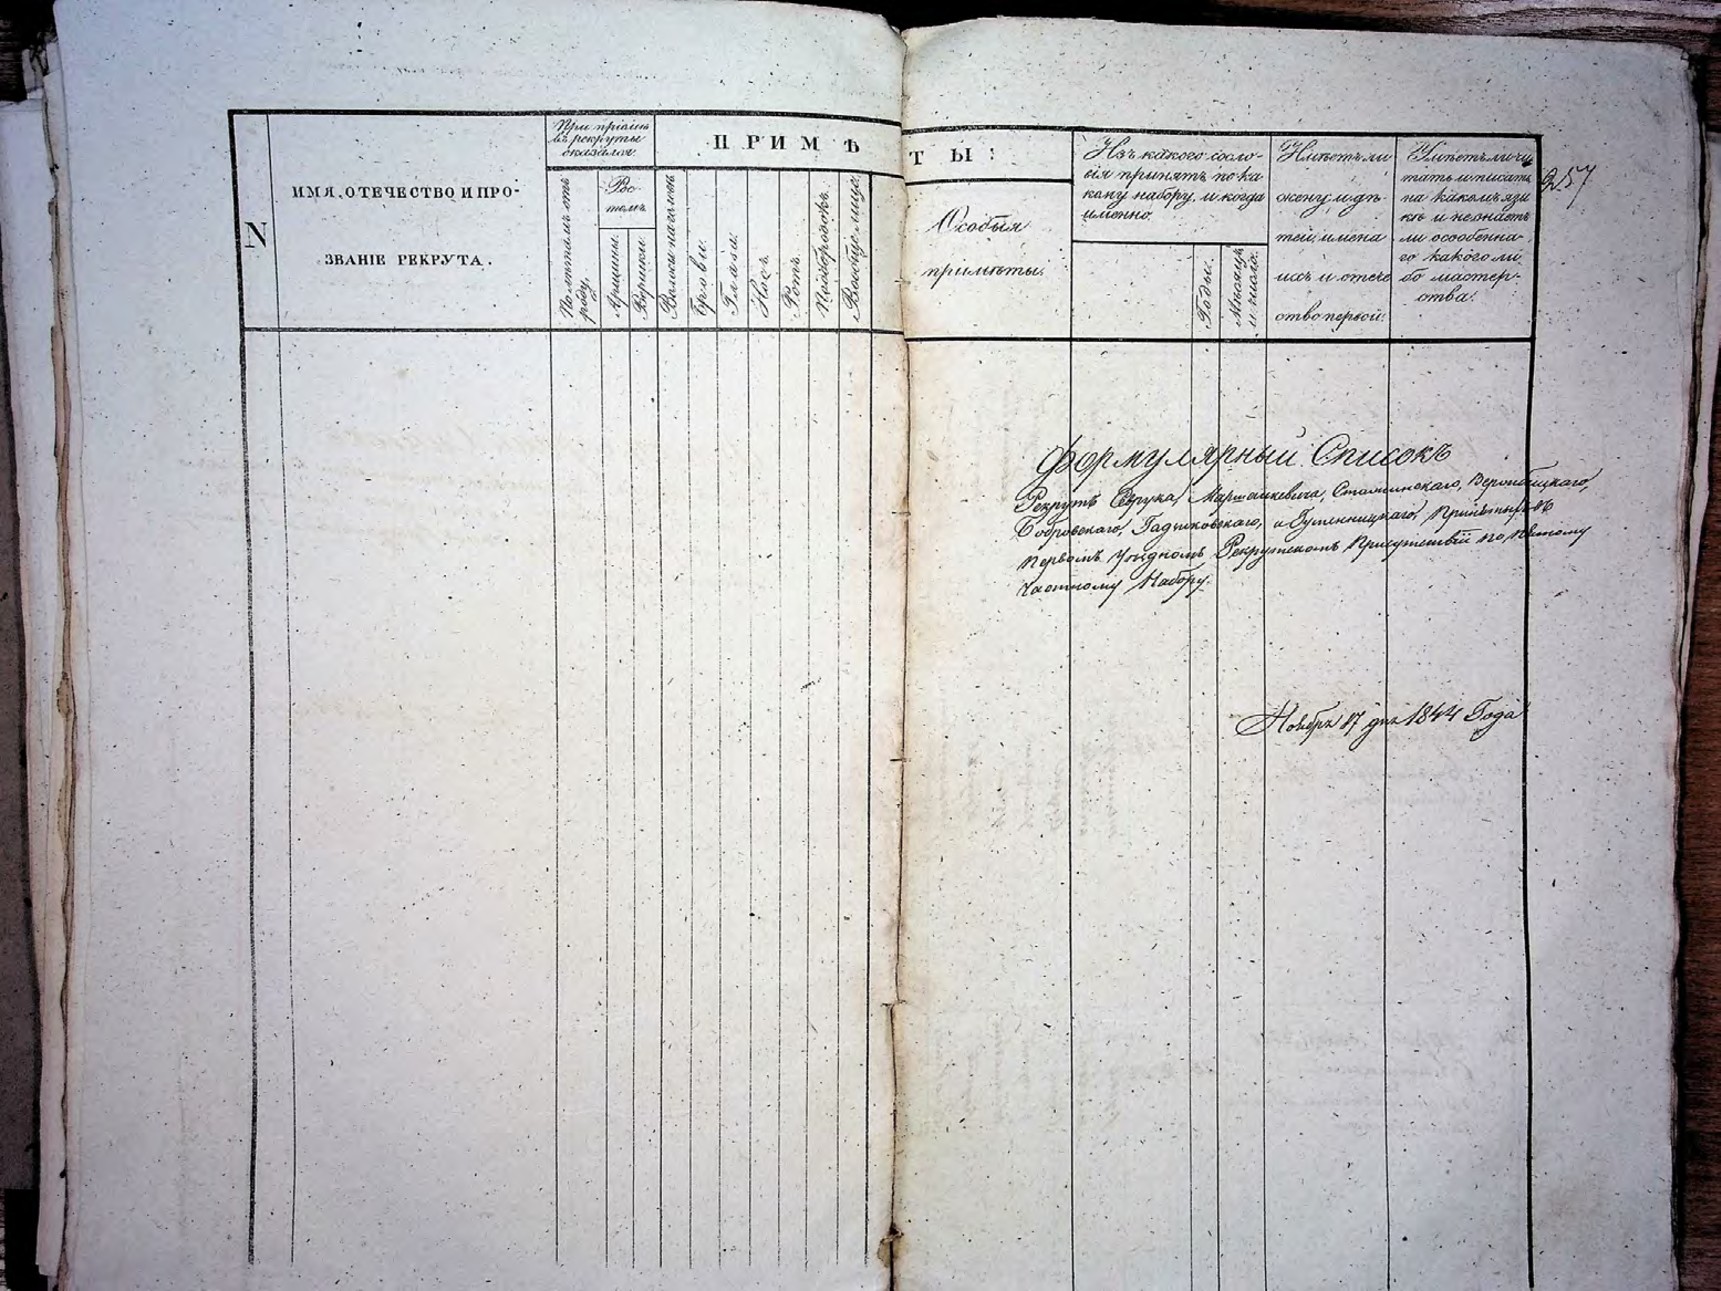 257
N
ИМЯ, ОТЕЧЕСТВО И ПРО-
ЗВАНІЕ РЕКРУТА.
При пріемѣ
въ рекруты
оказался.
По лѣтамъ отъ
роду.
Рос-
томъ
Аршины.
Вершки.
ПРИМѢ
Волосы на головѣ
Брови.
Глаза.
Носъ.
Ротъ.
Подбородокъ.
Вообще лице.
ТЫ:
Особыя
примѣты.
Изъ какого сосло-
вія принятъ по ка-
кому набору, и когда
именно.
Годы.
Мѣсяцъ
и число.
Имѣетъ ли
жену и дѣ-
тей, имена
ихъ и отече
ство первой.
Умѣетъ ли чи
тать и писать
на какомъ язы
кѣ и не знаетъ
ли особенна-
го какого ли
бо мастер-
ства.
Формулярный Списокъ
Рекрутъ Маршалкевича,
Бобровскаго, и Принятыхъ въ
Первомъ Уѣздномъ Рекрутскомъ Присутствіи по Пятому
Частному Набору.
Ноября 17 дня 1844 Года